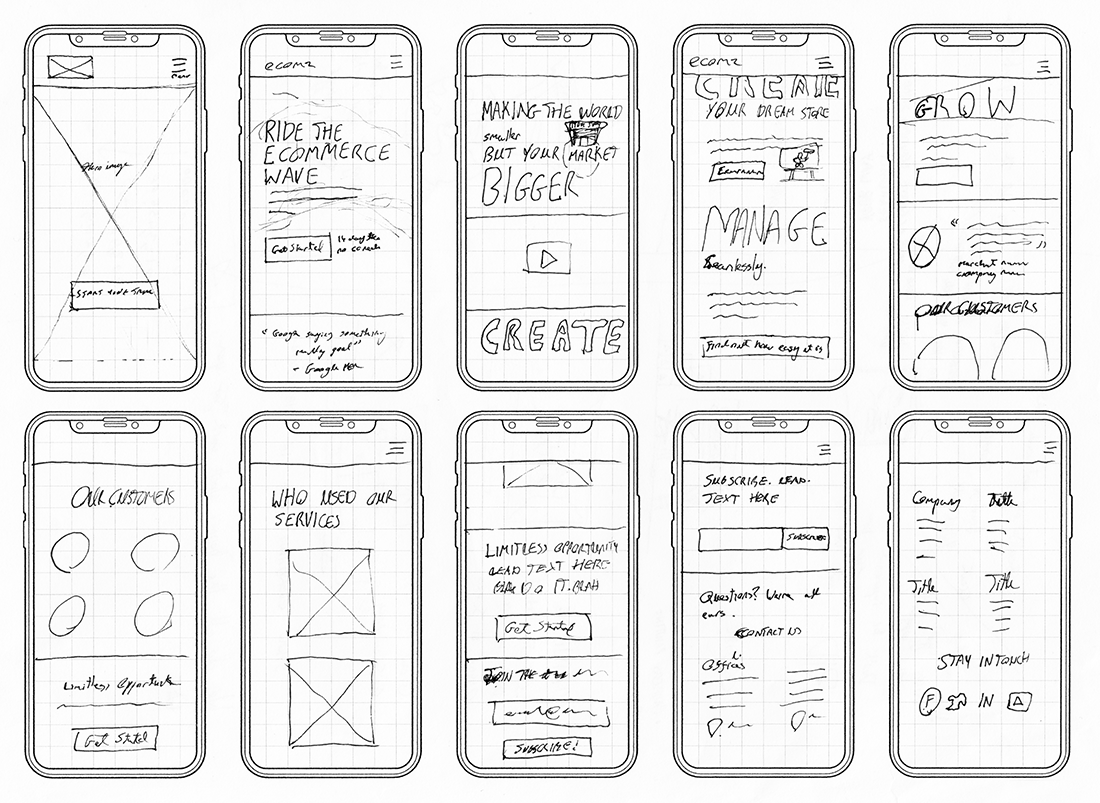 Menu
Hero image
START YOUR TRIAL
ecomz
RIDE THE
ECOMMERCE
WAVE
Get Started
14 day free
no
" Google saying something
really good"
- Google
MAKING THE WORLD
smaller
BUT YOUR MARKET
BIGGER
CREATE
ecomz
CREATE
YOUR DREAM STORE
MANAGE
Seamlessly.
Find out how easy it is
GROW
"
"
merchant name
company name
OUR CUSTOMERS
OUR CUSTOMERS
Limitless Opportunity
Get Started
WHO NEED OUR
SERVICES
LIMITLESS OPPORTUNITY
LEAD TEXT HERE
DO IT. BLAH
Get Started
JOIN THE
SUBSCRIBE!
SUBSCRIBE. LEAD.
TEXT HERE
SUBSCRIBE
Questions? We're all
ears.
CONTACT US
Offices
Company Title
Title Title
STAY IN TOUCH
F IN